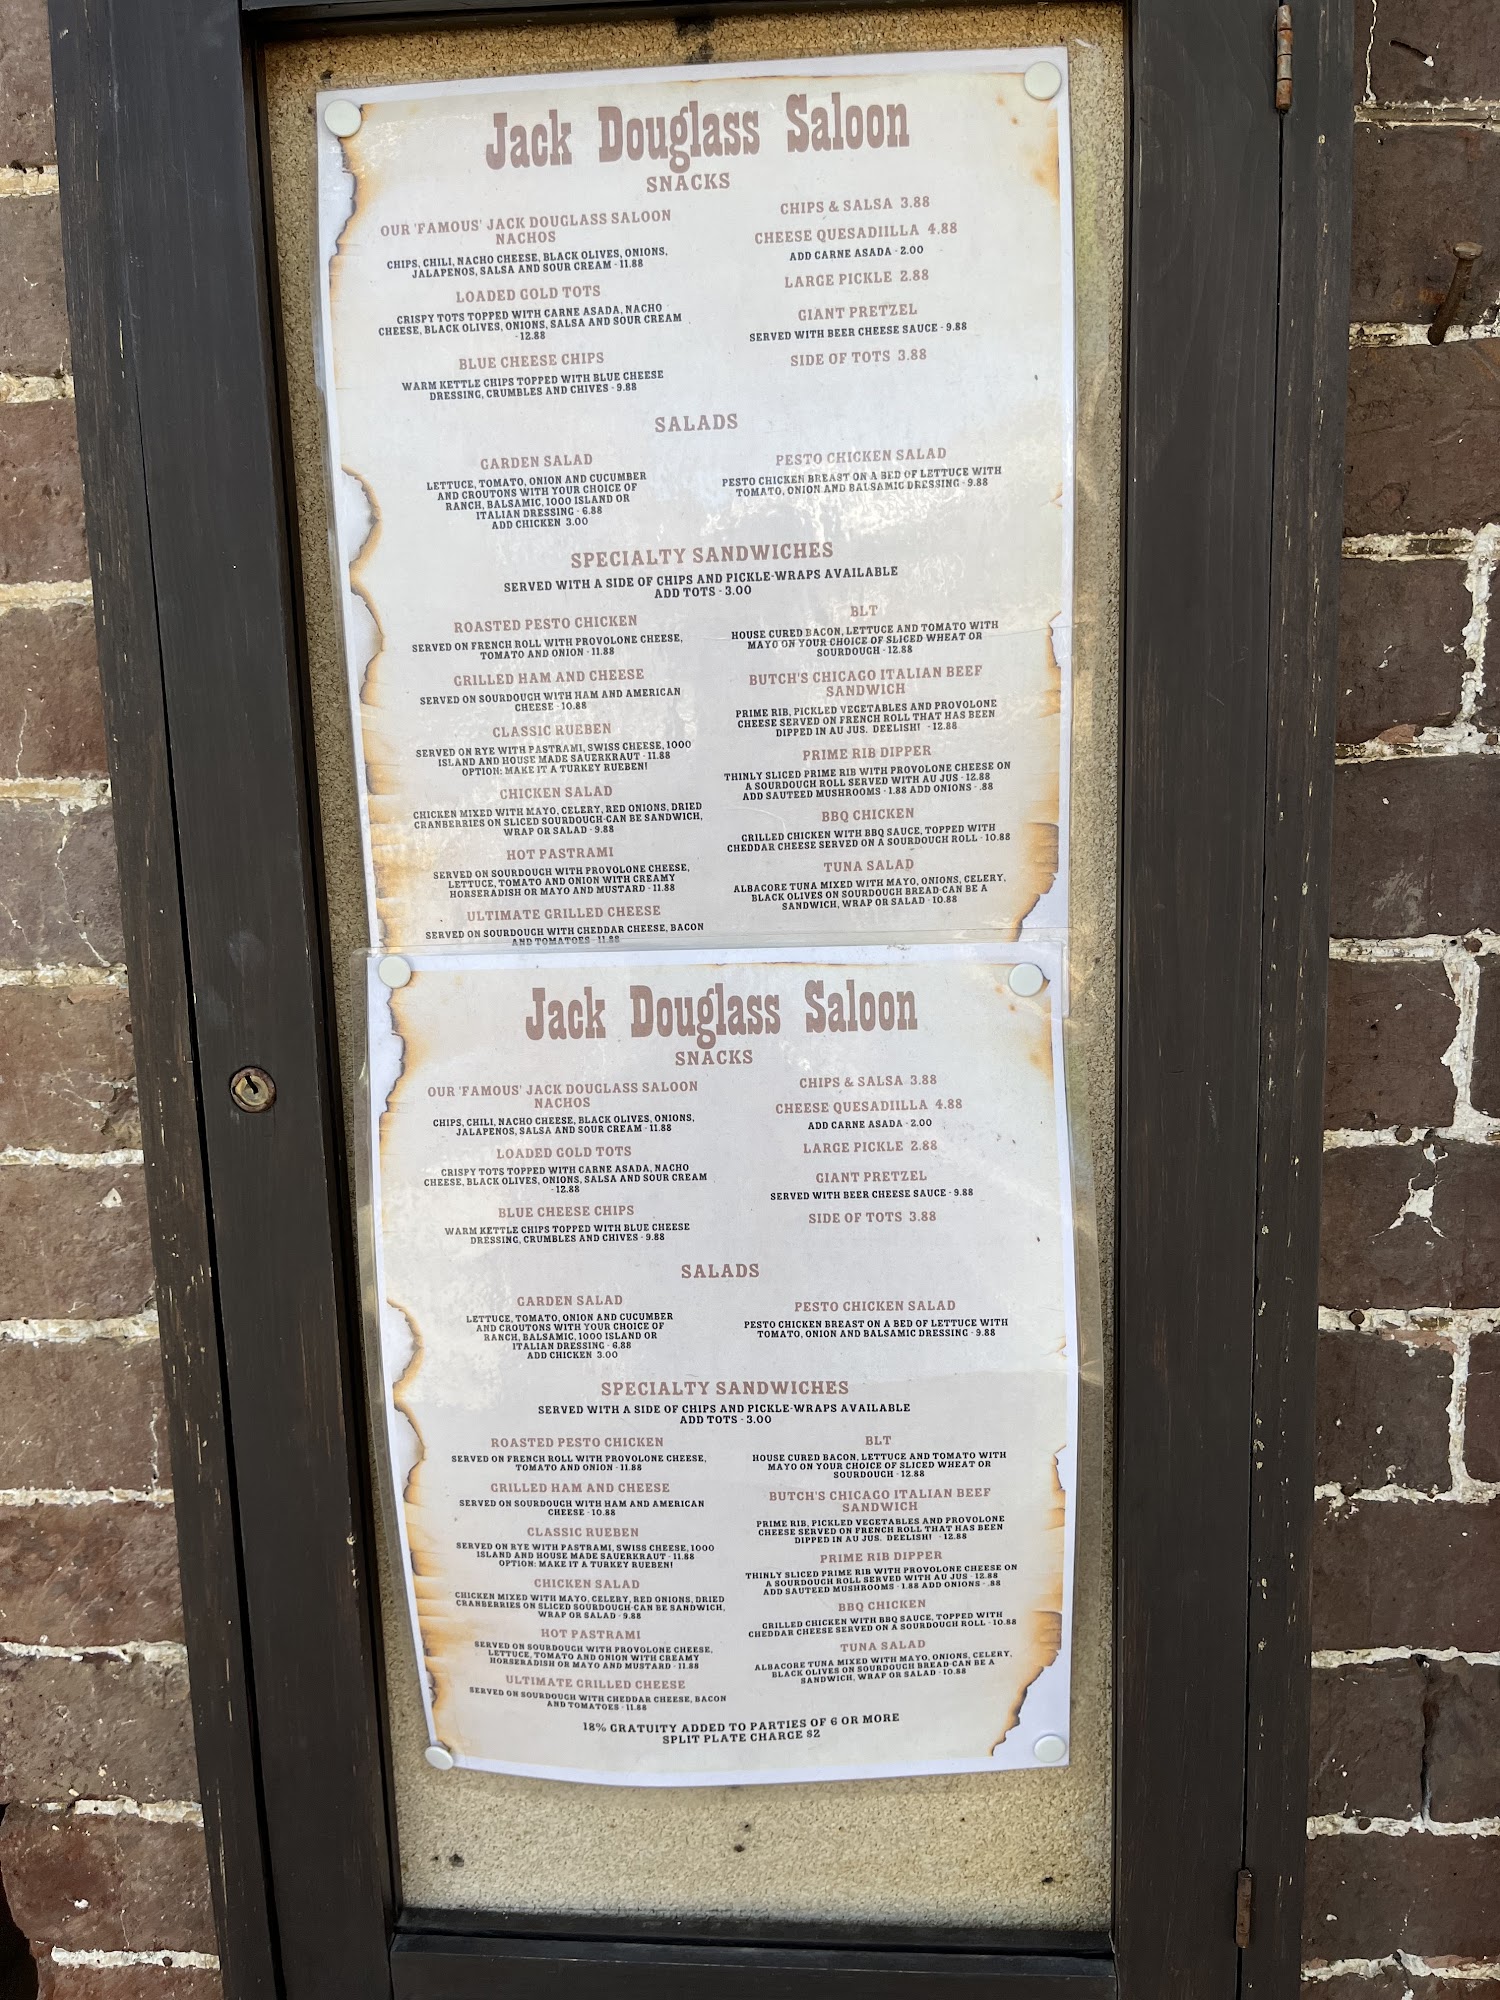 Jack Douglass Saloon
SNACKS
OUR 'FAMOUS' JACK DOUGLASS SALOON
NACHOS
CHIPS, CHILI, NACHO CHEESE, BLACK OLIVES, ONIONS,
JALAPENOS, SALSA AND SOUR CREAM - 11.88
LOADED GOLD TOTS
CRISPY TOTS TOPPED WITH CARNE ASADA, NACHO
CHEESE, BLACK OLIVES, ONIONS, SALSA AND SOUR CREAM
- 12.88
BLUE CHEESE CHIPS
WARM KETTLE CHIPS TOPPED WITH BLUE CHEESE
DRESSING, CRUMBLES AND CHIVES - 9.88
CHIPS & SALSA 3.88
CHEESE QUESADIILLA 4.88
ADD CARNE ASADA - 2.00
LARGE PICKLE 2.88
GIANT PRETZEL
SERVED WITH BEER CHEESE SAUCE - 9.88
SIDE OF TOTS 3.88
SALADS
GARDEN SALAD
LETTUCE, TOMATO, ONION AND CUCUMBER
AND CROUTONS WITH YOUR CHOICE OF
RANCH, BALSAMIC, 1000 ISLAND OR
ITALIAN DRESSING - 6.88
ADD CHICKEN 3.00
PESTO CHICKEN SALAD
PESTO CHICKEN BREAST ON A BED OF LETTUCE WITH
TOMATO, ONION AND BALSAMIC DRESSING - 9.88
SPECIALTY SANDWICHES
SERVED WITH A SIDE OF CHIPS AND PICKLE-WRAPS AVAILABLE
ADD TOTS - 3.00
ROASTED PESTO CHICKEN
SERVED ON FRENCH ROLL WITH PROVOLONE CHEESE,
TOMATO AND ONION - 11.88
GRILLED HAM AND CHEESE
SERVED ON SOURDOUGH WITH HAM AND AMERICAN
CHEESE - 10.88
CLASSIC RUEBEN
SERVED ON RYE WITH PASTRAMI, SWISS CHEESE, 1000
ISLAND AND HOUSE MADE SAUERKRAUT - 11.88
OPTION: MAKE IT A TURKEY RUEBEN!
CHICKEN SALAD
CHICKEN MIXED WITH MAYO, CELERY, RED ONIONS, DRIED
CRANBERRIES ON SLICED SOURDOUGH-CAN BE SANDWICH,
WRAP OR SALAD - 9.88
HOT PASTRAMI
SERVED ON SOURDOUGH WITH PROVOLONE CHEESE,
LETTUCE, TOMATO AND ONION WITH CREAMY
HORSERADISH OR MAYO AND MUSTARD - 11.88
ULTIMATE GRILLED CHEESE
SERVED ON SOURDOUGH WITH CHEDDAR CHEESE, BACON
AND TOMATOES - 11.88
BLT
HOUSE CURED BACON, LETTUCE AND TOMATO WITH
MAYO ON YOUR CHOICE OF SLICED WHEAT OR
SOURDOUGH - 12.88
BUTCH'S CHICAGO ITALIAN BEEF
SANDWICH
PRIME RIB, PICKLED VEGETABLES AND PROVOLONE
CHEESE SERVED ON FRENCH ROLL THAT HAS BEEN
DIPPED IN AU JUS. DEELISH! - 12.88
PRIME RIB DIPPER
THINLY SLICED PRIME RIB WITH PROVOLONE CHEESE ON
A SOURDOUGH ROLL SERVED WITH AU JUS - 12.88
ADD SAUTEED MUSHROOMS - 1.88 ADD ONIONS - .88
BBQ CHICKEN
GRILLED CHICKEN WITH BBQ SAUCE, TOPPED WITH
CHEDDAR CHEESE SERVED ON A SOURDOUGH ROLL - 10.88
TUNA SALAD
ALBACORE TUNA MIXED WITH MAYO, ONIONS, CELERY,
BLACK OLIVES ON SOURDOUGH BREAD-CAN BE A
SANDWICH, WRAP OR SALAD - 10.88
Jack Douglass Saloon
SNACKS
OUR 'FAMOUS' JACK DOUGLASS SALOON
NACHOS
CHIPS, CHILI, NACHO CHEESE, BLACK OLIVES, ONIONS,
JALAPENOS, SALSA AND SOUR CREAM - 11.88
LOADED GOLD TOTS
CRISPY TOTS TOPPED WITH CARNE ASADA, NACHO
CHEESE, BLACK OLIVES, ONIONS, SALSA AND SOUR CREAM
- 12.88
BLUE CHEESE CHIPS
WARM KETTLE CHIPS TOPPED WITH BLUE CHEESE
DRESSING, CRUMBLES AND CHIVES - 9.88
CHIPS & SALSA 3.88
CHEESE QUESADIILLA 4.88
ADD CARNE ASADA - 2.00
LARGE PICKLE 2.88
GIANT PRETZEL
SERVED WITH BEER CHEESE SAUCE - 9.88
SIDE OF TOTS 3.88
SALADS
GARDEN SALAD
LETTUCE, TOMATO, ONION AND CUCUMBER
AND CROUTONS WITH YOUR CHOICE OF
RANCH, BALSAMIC, 1000 ISLAND OR
ITALIAN DRESSING - 6.88
ADD CHICKEN 3.00
PESTO CHICKEN SALAD
PESTO CHICKEN BREAST ON A BED OF LETTUCE WITH
TOMATO, ONION AND BALSAMIC DRESSING - 9.88
SPECIALTY SANDWICHES
SERVED WITH A SIDE OF CHIPS AND PICKLE-WRAPS AVAILABLE
ADD TOTS - 3.00
ROASTED PESTO CHICKEN
SERVED ON FRENCH ROLL WITH PROVOLONE CHEESE,
TOMATO AND ONION - 11.88
GRILLED HAM AND CHEESE
SERVED ON SOURDOUGH WITH HAM AND AMERICAN
CHEESE - 10.88
CLASSIC RUEBEN
SERVED ON RYE WITH PASTRAMI, SWISS CHEESE, 1000
ISLAND AND HOUSE MADE SAUERKRAUT - 11.88
OPTION: MAKE IT A TURKEY RUEBEN!
CHICKEN SALAD
CHICKEN MIXED WITH MAYO, CELERY, RED ONIONS, DRIED
CRANBERRIES ON SLICED SOURDOUGH-CAN BE SANDWICH,
WRAP OR SALAD - 9.88
HOT PASTRAMI
SERVED ON SOURDOUGH WITH PROVOLONE CHEESE,
LETTUCE, TOMATO AND ONION WITH CREAMY
HORSERADISH OR MAYO AND MUSTARD - 11.88
ULTIMATE GRILLED CHEESE
SERVED ON SOURDOUGH WITH CHEDDAR CHEESE, BACON
AND TOMATOES - 11.88
BLT
HOUSE CURED BACON, LETTUCE AND TOMATO WITH
MAYO ON YOUR CHOICE OF SLICED WHEAT OR
SOURDOUGH - 12.88
BUTCH'S CHICAGO ITALIAN BEEF
SANDWICH
PRIME RIB, PICKLED VEGETABLES AND PROVOLONE
CHEESE SERVED ON FRENCH ROLL THAT HAS BEEN
DIPPED IN AU JUS. DEELISH! - 12.88
PRIME RIB DIPPER
THINLY SLICED PRIME RIB WITH PROVOLONE CHEESE ON
A SOURDOUGH ROLL SERVED WITH AU JUS - 12.88
ADD SAUTEED MUSHROOMS - 1.88 ADD ONIONS - .88
BBQ CHICKEN
GRILLED CHICKEN WITH BBQ SAUCE, TOPPED WITH
CHEDDAR CHEESE SERVED ON A SOURDOUGH ROLL - 10.88
TUNA SALAD
ALBACORE TUNA MIXED WITH MAYO, ONIONS, CELERY,
BLACK OLIVES ON SOURDOUGH BREAD-CAN BE A
SANDWICH, WRAP OR SALAD - 10.88
18% GRATUITY ADDED TO PARTIES OF 6 OR MORE
SPLIT PLATE CHARGE $2